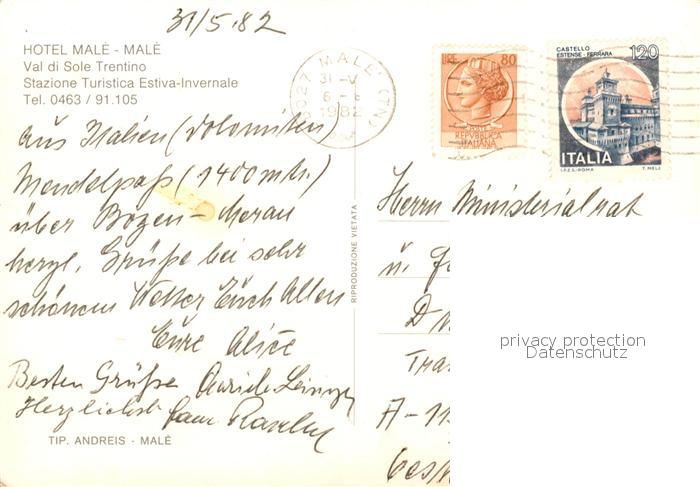 31/5.82
HOTEL MALÈ - MALÈ
Val di Sole Trentino
Stazione Turistica Estiva-Invernale
Tel. 0463 / 91.105
MALE' (TN)
31-V
1982
LIRE 80
POSTE
REPVBBLICA
ITALIANA
CASTELLO
ESTENSE - FERRARA
120
ITALIA
I.P.Z.S.-ROMA T. MELE
Aus Italien (Dolomiten)
Mendelpaß (1400 mh.)
über Bozen - Meran
herzl. Grüße bei sehr
schönem Wetter Euch Allen
Eure Alice
Besten Grüße
Herzlichst
TIP. ANDREIS - MALÈ
RIPRODUZIONE VIETATA
Herrn Ministerialrat
u.
A-11
privacy protection
Datenschutz